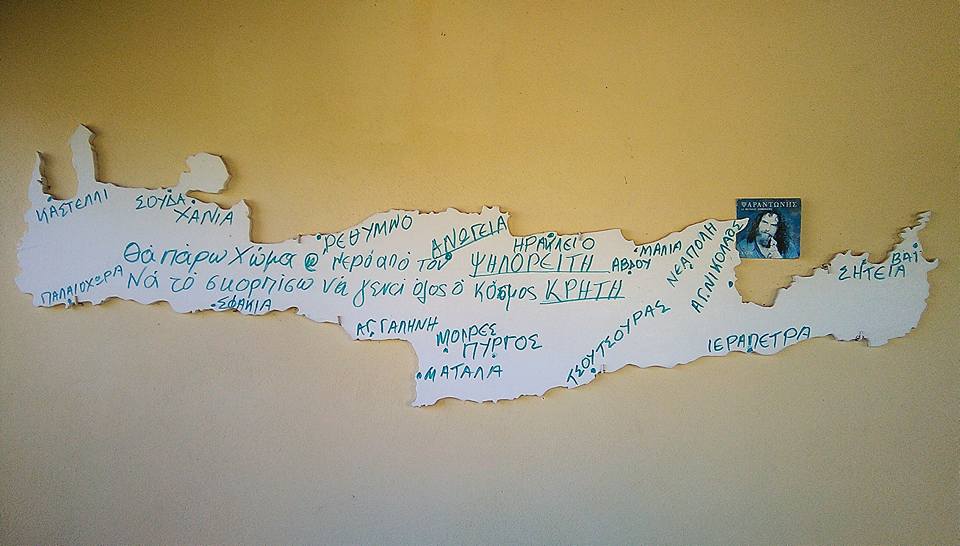 ΨΑΡΑΝΤΩΝΗΣ
ΚΑΣΤΕΛΛΙ
ΣΟΥΔΑ
ΧΑΝΙΑ
ΡΕΘΥΜΝΟ
ΑΝΩΓΕΙΑ
ΗΡΑΚΛΕΙΟ
ΑΒΔΟΥ
ΜΑΛΙΑ
ΝΕΑΠΟΛΗ
ΑΓ.ΝΙΚΟΛΑΟΣ
ΣΗΤΕΙΑ
ΒΑΪ
Θά πάρω Χώμα @ νερό από τον ΨΗΛΟΡΕΙΤΗ
Νά τό σκορπίσω νά γενεί όλος ό κόσμος ΚΡΗΤΗ
ΠΑΛΑΙΟΧΩΡΑ
ΣΦΑΚΙΑ
ΑΓ.ΓΑΛΗΝΗ
ΜΟΙΡΕΣ
ΠΥΡΓΟΣ
ΜΑΤΑΛΑ
ΤΣΟΥΤΣΟΥΡΑΣ
ΙΕΡΑΠΕΤΡΑ